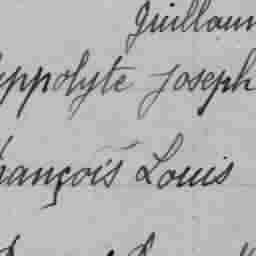 Guillaum
yppolyte Joseph
rançois Louis